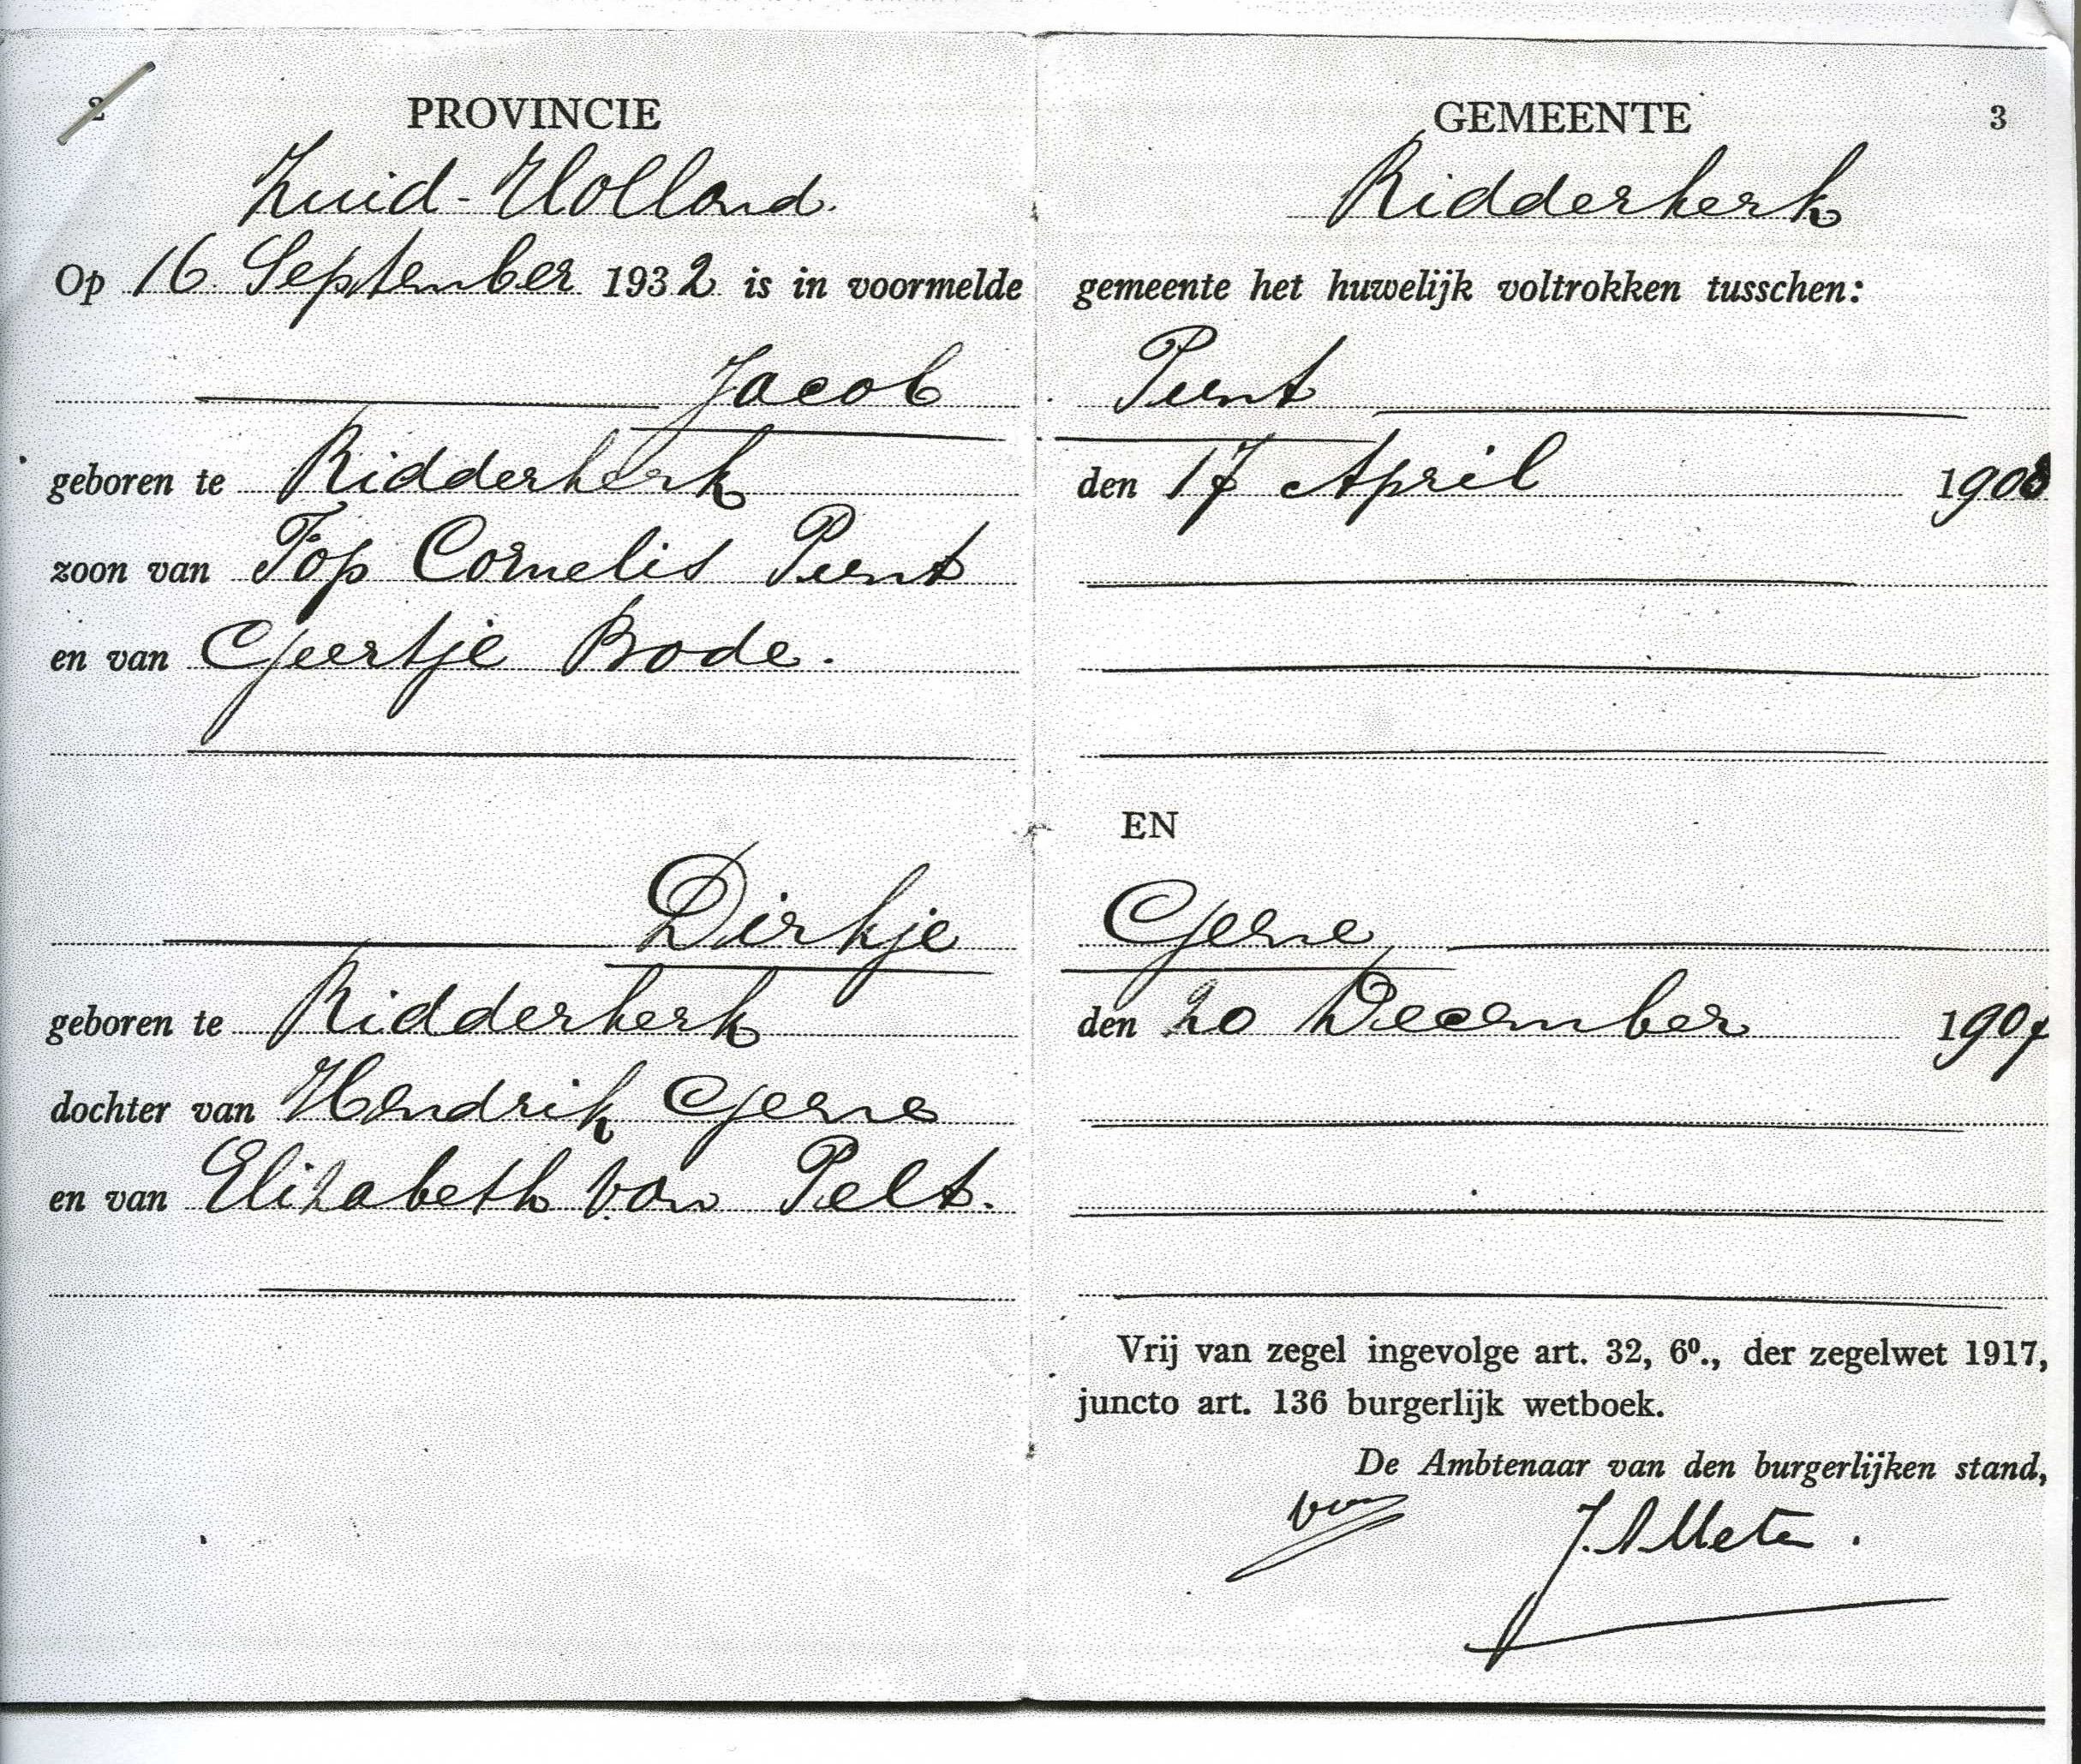 2 PROVINCIE
Zuid-Holland.
Op 16 September 1932 is in voormelde
Jacob
geboren te Ridderkerk
zoon van Fop Cornelis Punt
en van Geertje Bode.
Dirkje
geboren te Ridderkerk
dochter van Hendrik Gerne
en van Elizabeth van Pelt.
GEMEENTE 3
Ridderkerk
gemeente het huwelijk voltrokken tusschen:
Punt
den 17 April 1908
EN
Gerne
den 20 December 1907
Vrij van zegel ingevolge art. 32, 6º., der zegelwet 1917,
juncto art. 136 burgerlijk wetboek.
De Ambtenaar van den burgerlijken stand,